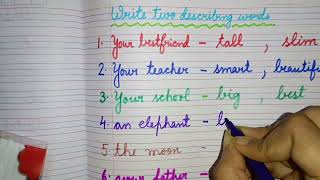 Write two describing words
1. Your bestfriend - tall , slim
2. Your teacher - smart,
3. Your school - big , best
4. an elephant -
5. the moon -
6. your father -